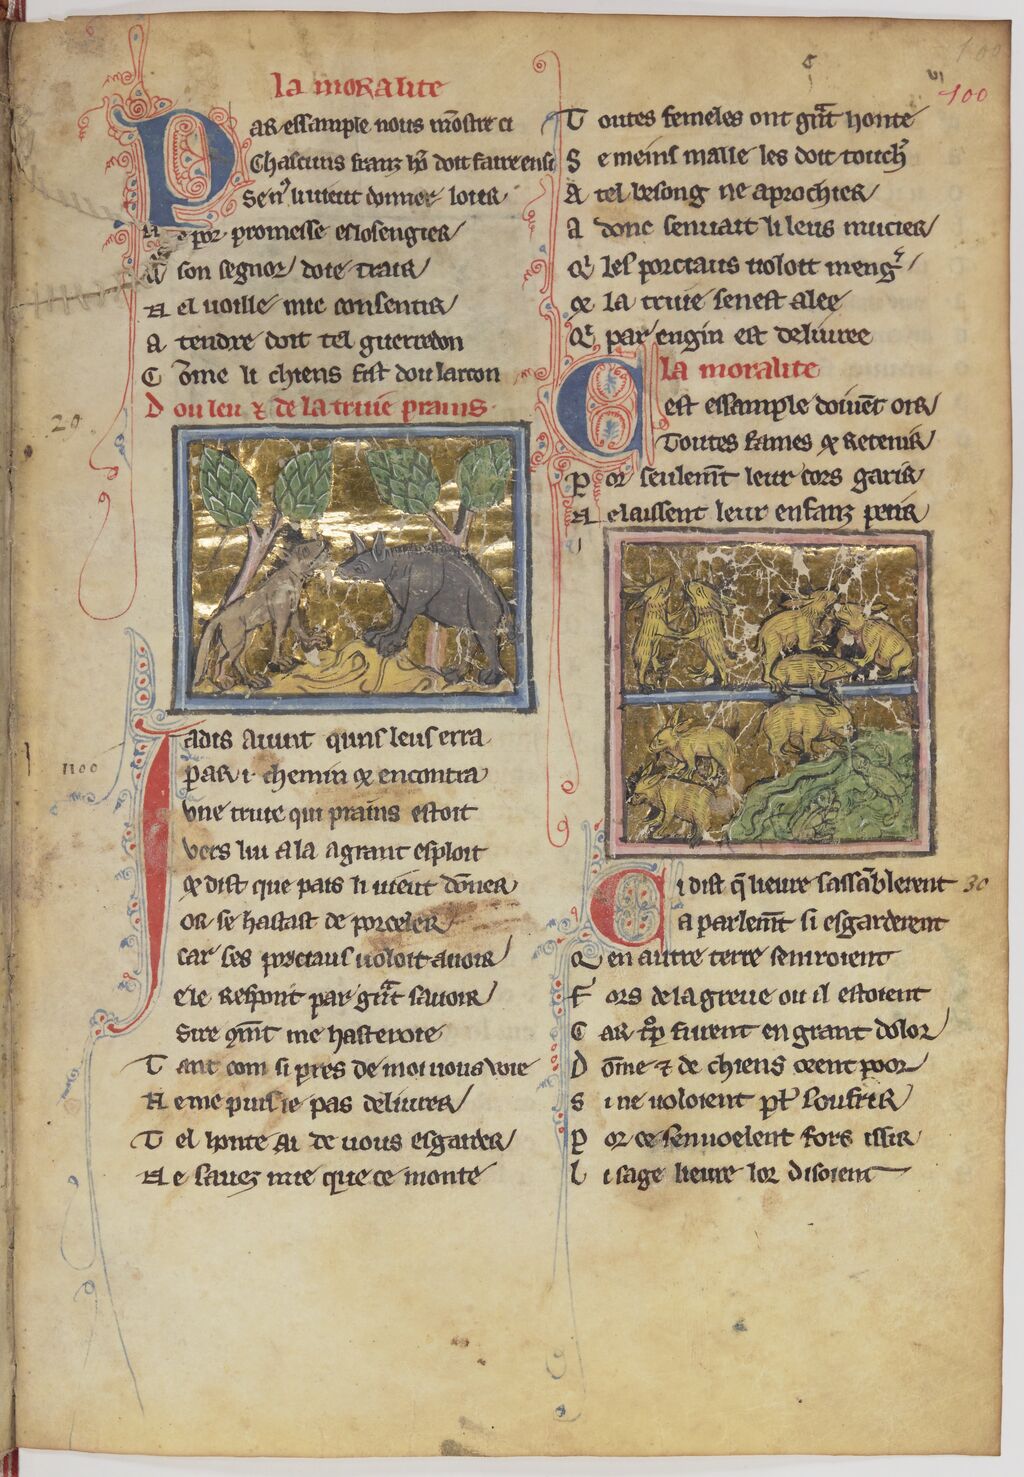 la moralite
Par essample nous mostre ci
Chascuns franz hõ doit faire ensi
Se nˀ li vient donner loier
Ne por promesse eslosengier
Qͥ son segnor doie trair
Ne l voille mie consentir
Atendre doit tel guerredon
Cõme li chiens fist dou larron
Dou leu ⁊ de la truie prains
20
Jadis avint quns leus erra
par i chemin ⁊ encontra
vne truie qui prains estoit
vers lui ala a grant esploit
⁊ dist que pais li vient dõner
or se hastast de porceler
car ses porciaus voloit avoir
ele respont par gñt savoir
Sire qm̃t me hasteroie
Tant com si pres de moi vous voie
Ne me puis ie pas deliurer
Tel honte ai de vous esgarder
Ne savez mie que ce monte
1100
100
Toutes femeles ont gñt honte
Se meins malle les doit touchˀ
A tel besong ne aprochier
A donc senvait li leus mucier
Qͥ les porciaus volott mengˀ
⁊ la truie senest alee
Qͥ par engin est deliuree
la moralite
Cest essample doiuẽt oir
Toutes fames ⁊ retenir
Por seulem̃t leur cors garir
Ne laissent leur enfanz perir
Ci dist q̃ lieure sassãblerent
30
A parlem̃t si esgarderent
Qen autre terre senroient
Fors de la greue ou il estoient
Car tͬp furent en grant dolor
Dõme ⁊ de chiens orent poor
Si ne voloient pl᷒ soufrir
Por ce senvoelent fors issir
Li sage lieure lor disoient